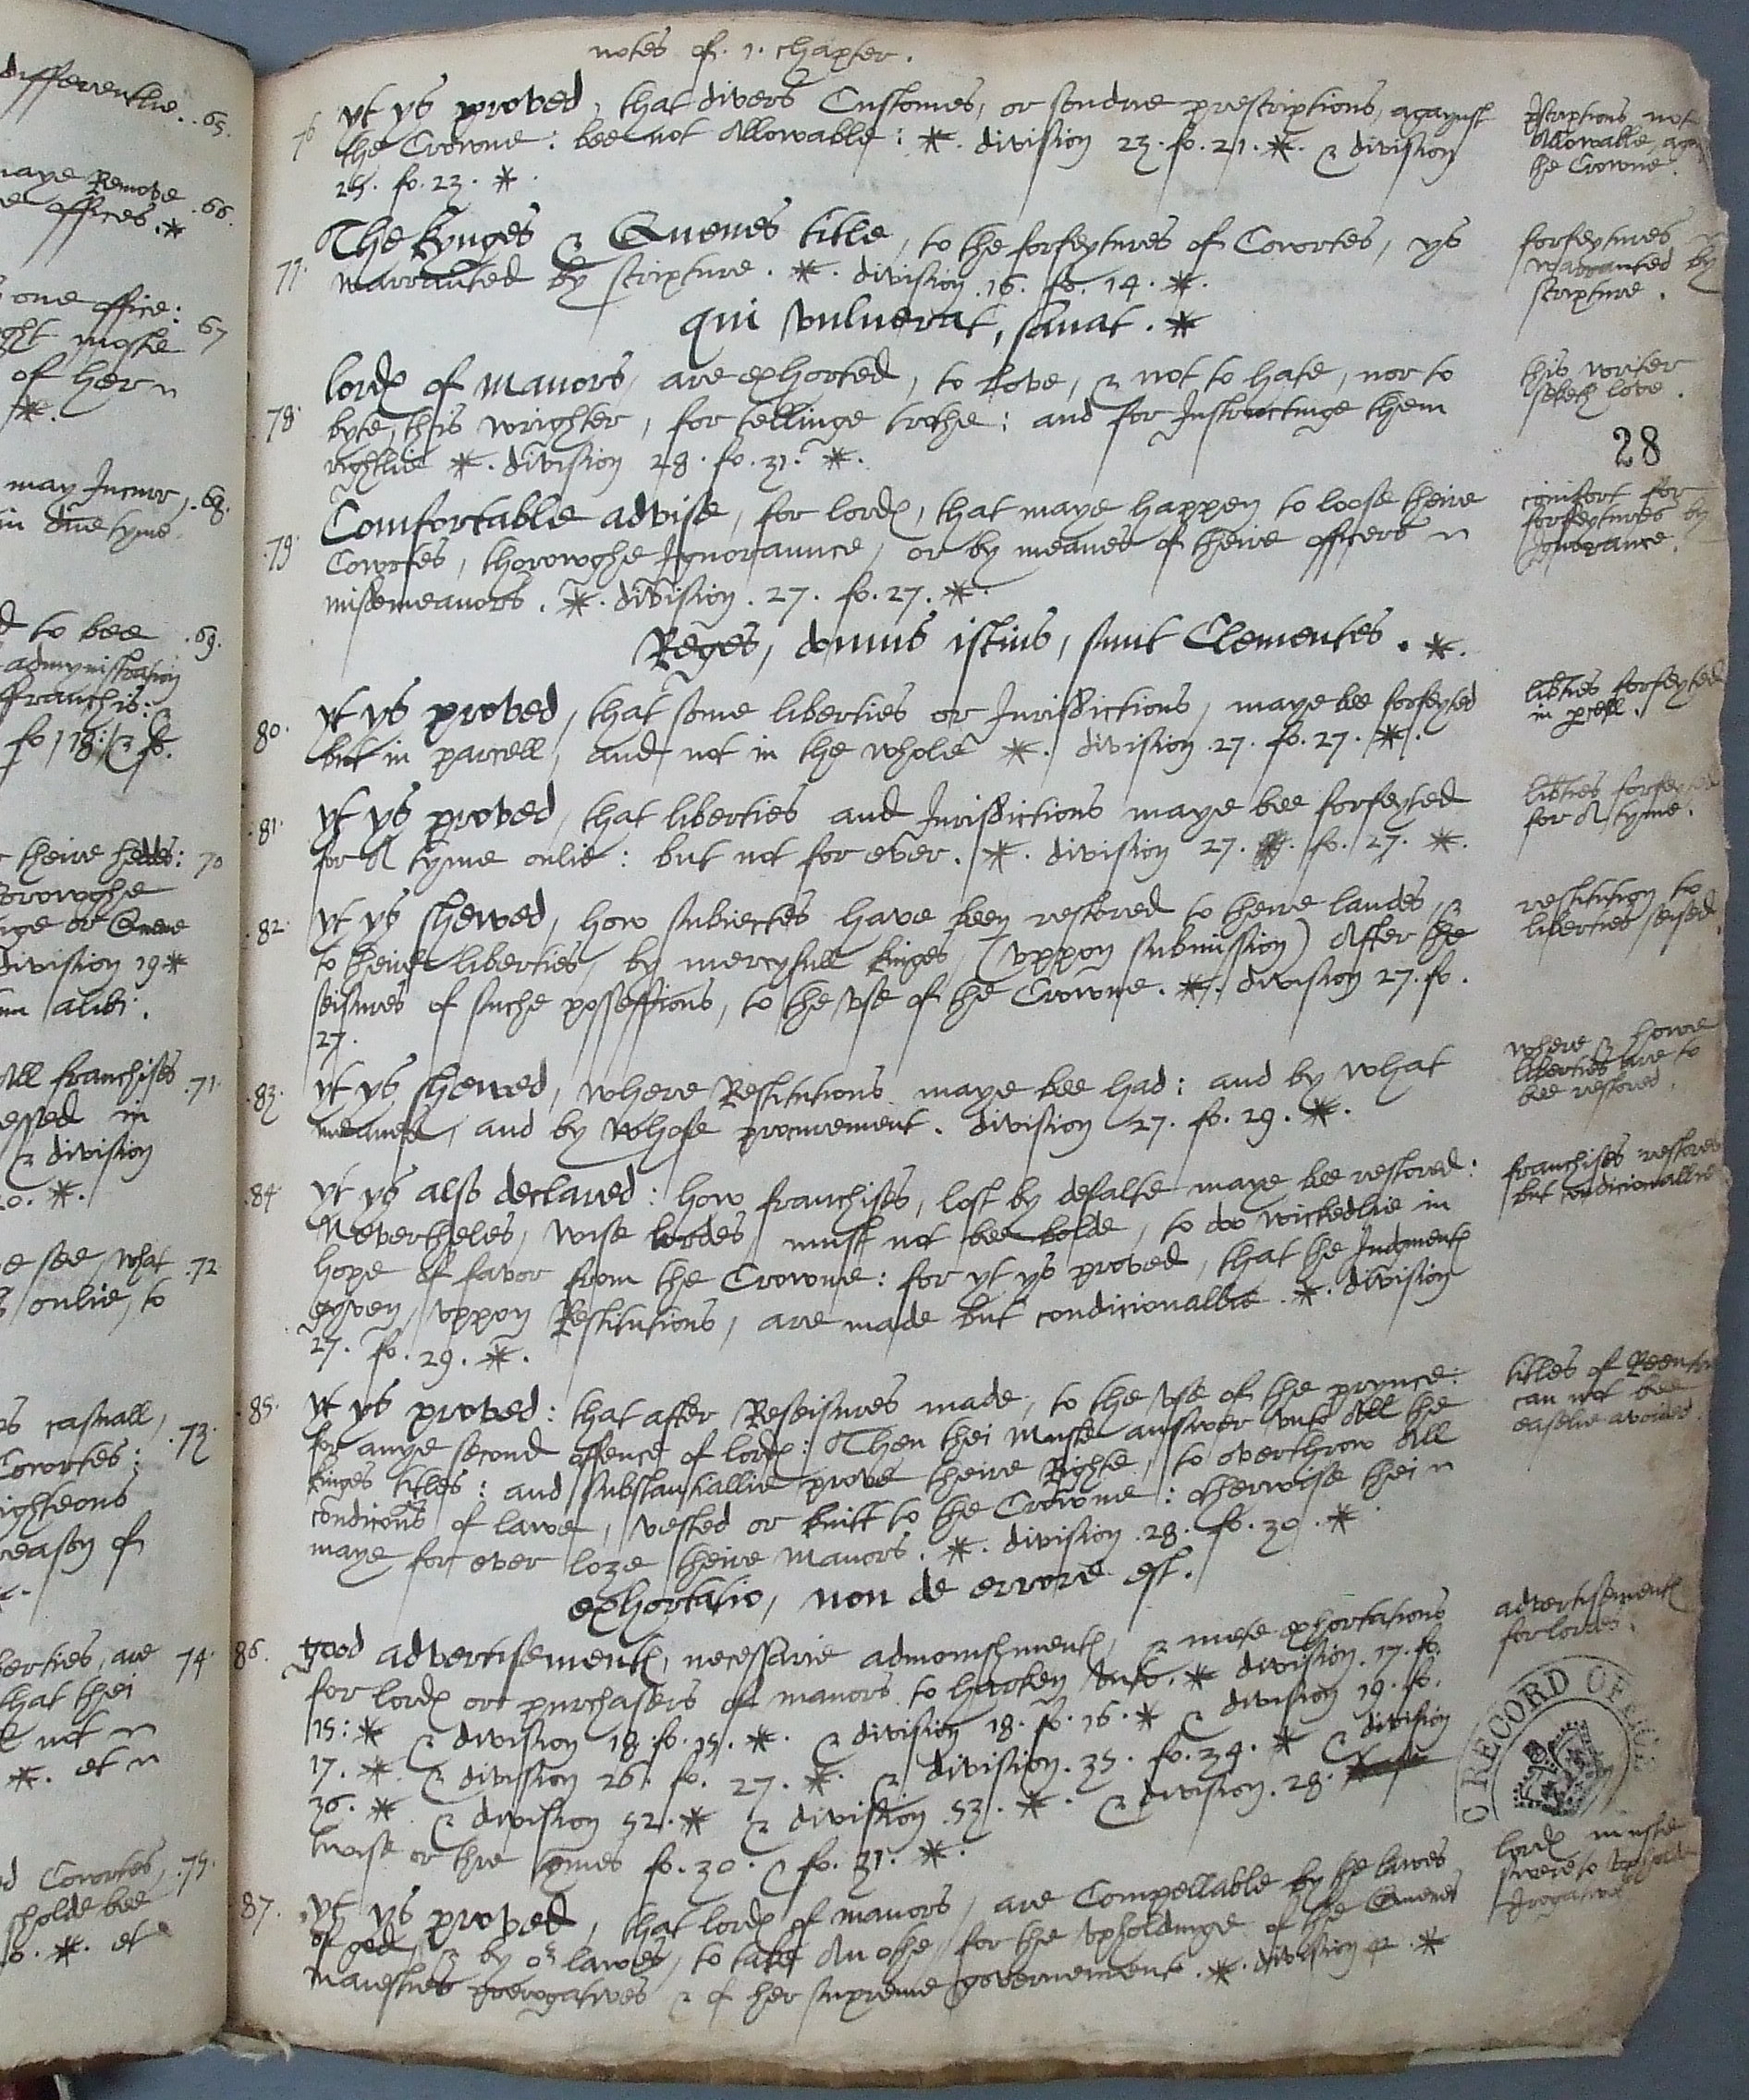 notes of .1. chapter.
76 yt ys proved, that divers Customes, or sondrie prescriptions, agaynst
the Crowne: bee not Allowable: *. division 23. fo. 21. *. & division
25. fo. 23. *.
pscriptions not
Allowable, aga
the Crowne.
77. The kynges & Quenes title, to the forfeytures of Cowrtes, ys
warranted by scripture. *. division .16. fo. 14. *.
qui vulnerat, sanat. *
forfeytures
warranted by
scripture.
78. lordes of manors, are exhorted, to love, & not to hate, nor to
byte, this wrighter, for tellinge trothe: and for Instructinge them
rightlie *. division 28. fo. 31. *.
this writer
seketh love.
28
79. Comfortable advise, for lordes, that maye happen to loose theire
Cowrtes, thorowghe Ignoraunce, or by meanes of theire officers
missemeanors. *. division. 27. fo. 27. *.
Reges, domus istius, sunt Clementes. *.
comfort for
forfeytures by
Ignorance.
80. yt ys proved, that some liberties or Jurisdictions, maye bee forfeyted
but in parcell, and not in the whole *. division .27. fo. 27. *.
libties forfeyted
in pcell.
.81. yt ys proved, that liberties and Jurisdictions maye bee forfeyted
for A tyme onlie: but not for ever. *. division 27. fo. 27. *.
libties forfeyted
for A tyme.
.82. yt ys shewed, how subiectes have been restored to theire landes, &
to theire liberties, by mercyfull kinges, (uppon submission) After the
seisures of suche possessions, to the use of the Crowne. *. division 27. fo.
27.
restitution to
liberties seised.
.83. yt ys shewed, where Restitutions maye bee had: and by what
meanes, and by whose procurement. division 27. fo. 29. *.
where & howe
liberties are to
bee restored.
.84. yt ys also declared: how franchises, lost by defalte maye bee restored:
Nevertheles, wise lordes must not bee bolde, to doo wickedlie in
hope of favor from the Crowne: for yt ys proved, that the Judgmentes
gyven, uppon Restitutions, are made but condicionallie. *. division
27. fo. 29. *.
franchises restored
but condicionallie
.85. yt ys proved: that after Reseisures made, to the use of the prynce:
for anye second offence of lordes: Then thei muste answer unto All the
kinges titles: and substantiallie prove theire Righte, to overthrow All
condicons of lawe, vested or knitt to the Crowne: otherwise thei
maye for ever loze theire manors. *. division .28. fo. 30. *
exhortatio, non de errore est.
titles of Reentrie
can not bee
easelie avoided.
86. good advertisementes, necessarie admonishmentes, & mete exhortations
for lordes or purchasers of manors to harken unto. * division .17. fo.
15: * & division 18. fo. 15. *. & division 18. fo. 16. * & division 19. fo.
17. * & division 26. fo. 27. *. & division .35. fo. 34. * & division
36. * & division 52. * & division .53. *. & division .28.
twise or thre tymes fo. 30. & fo. 31. *.
advertisementes
for lordes.
RECORD OFFICE
87. yt ys proved, that lordes of manors, are Compellable by the lawes
of god, & by or lawes, to take An othe, for the upholdinge of the Quenes
maiesties prerogatives & of her supreme governemente. *. division *
lordes muste
swere to uphold
differentlie. .65.
maye Remove .66.
offices. *
one office: 67
moste
of her
*.
may Incurr, .68.
in due tyme.
to bee .69.
admynistration
franchis:
fo. 18: & fo.
theire heddes: 70
thorowghe
or Quene
division 19 *
alibi.
All franchises .71.
in
& division
*.
see, what .72
onlie, to
casuall, .73.
Cowrtes:
righteous
reason of
liberties, are 74.
that thei
not
*. et
Cowrtes, .75.
sholde bee
*. et